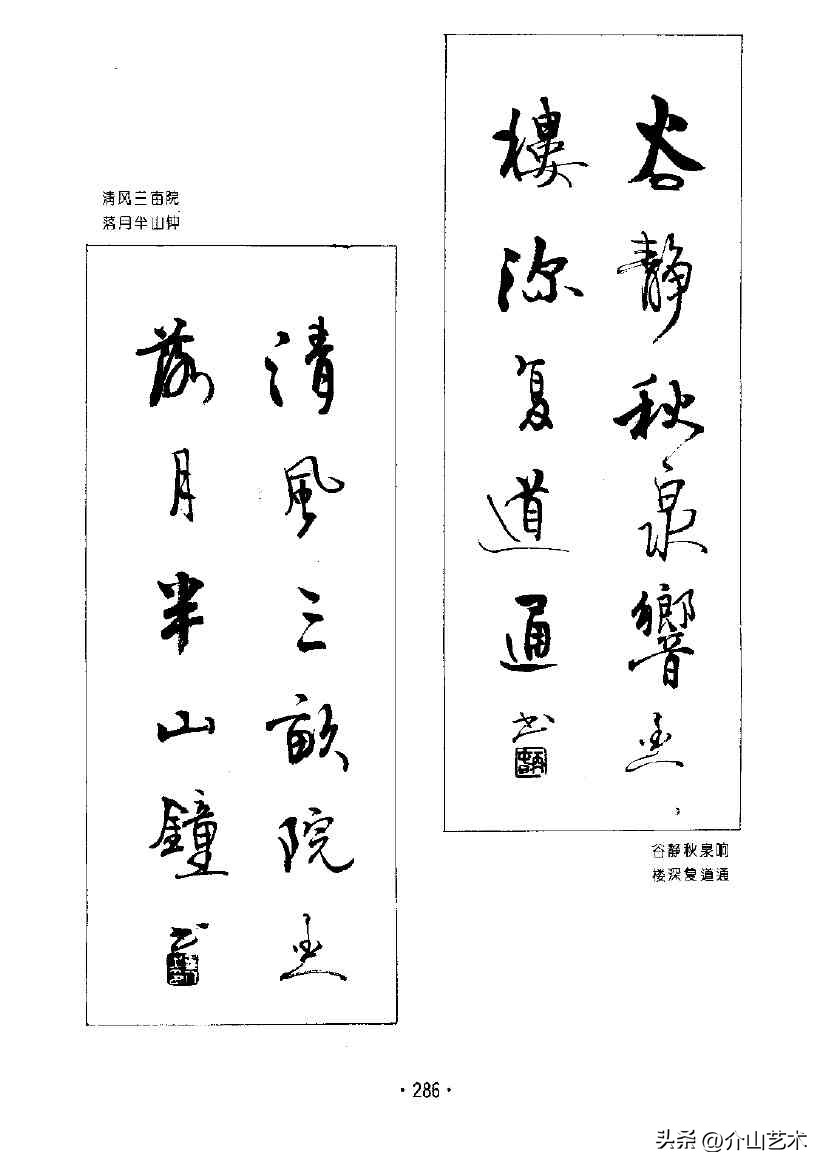 谷静秋泉響
樓深复道通
谷静秋泉响
楼深复道通
清风三亩院
落月半山钟
清風三畝院
落月半山鐘
·286·
头条@介山艺术